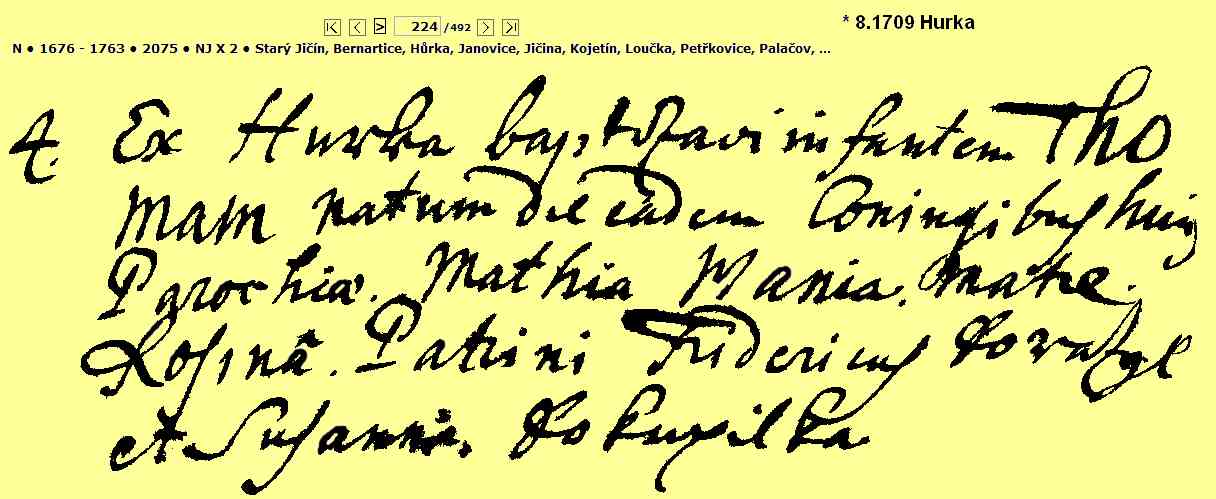 224 /492
* 8.1709 Hurka
N ● 1676 - 1763 ● 2075 ● NJ X 2 ● Starý Jičín, Bernartice, Hůrka, Janovice, Jičina, Kojetín, Loučka, Petřkovice, Palačov, ...
4. Ex Hurka baptizavi infantem Tho
mam natum die eadem Coniugibus huius
Parochia. Mathia Mania. matre.
Rosina. Patrini Fridericus
et Susanna,